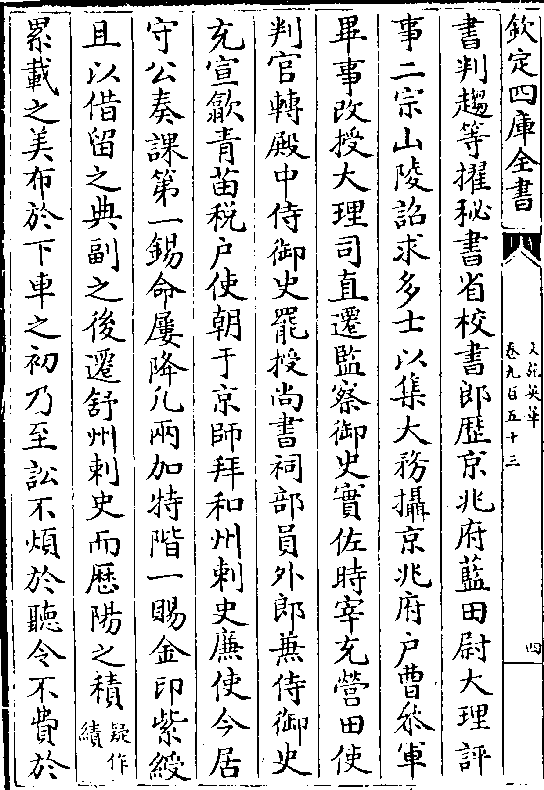 欽定四庫全書
文苑英華
卷九百五十三
四
書判趨等擢秘書省校書郎歴京兆府藍田尉大理評
事二宗山陵詔求多士以集大務攝京兆府户曹叅軍
畢事改授大理司直遷監察御史實佐時宰充營田使
判官轉殿中侍御史罷授尚書祠部員外郎蕪侍御史
充宣歙青苖税户使朝于京師拜和州刺史廉使今居
守公奏課第一錫命屢降凡兩加特階一賜金印紫綬
且以借留之典副之後遷舒州刺史而歴陽之積疑作績
累載之美布於下車之初乃至訟不煩於聽令不費於